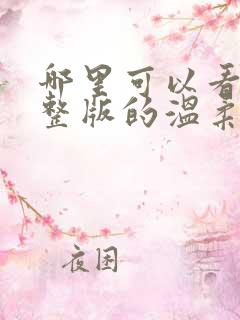 哪里可以看
整版的温柔
夜困